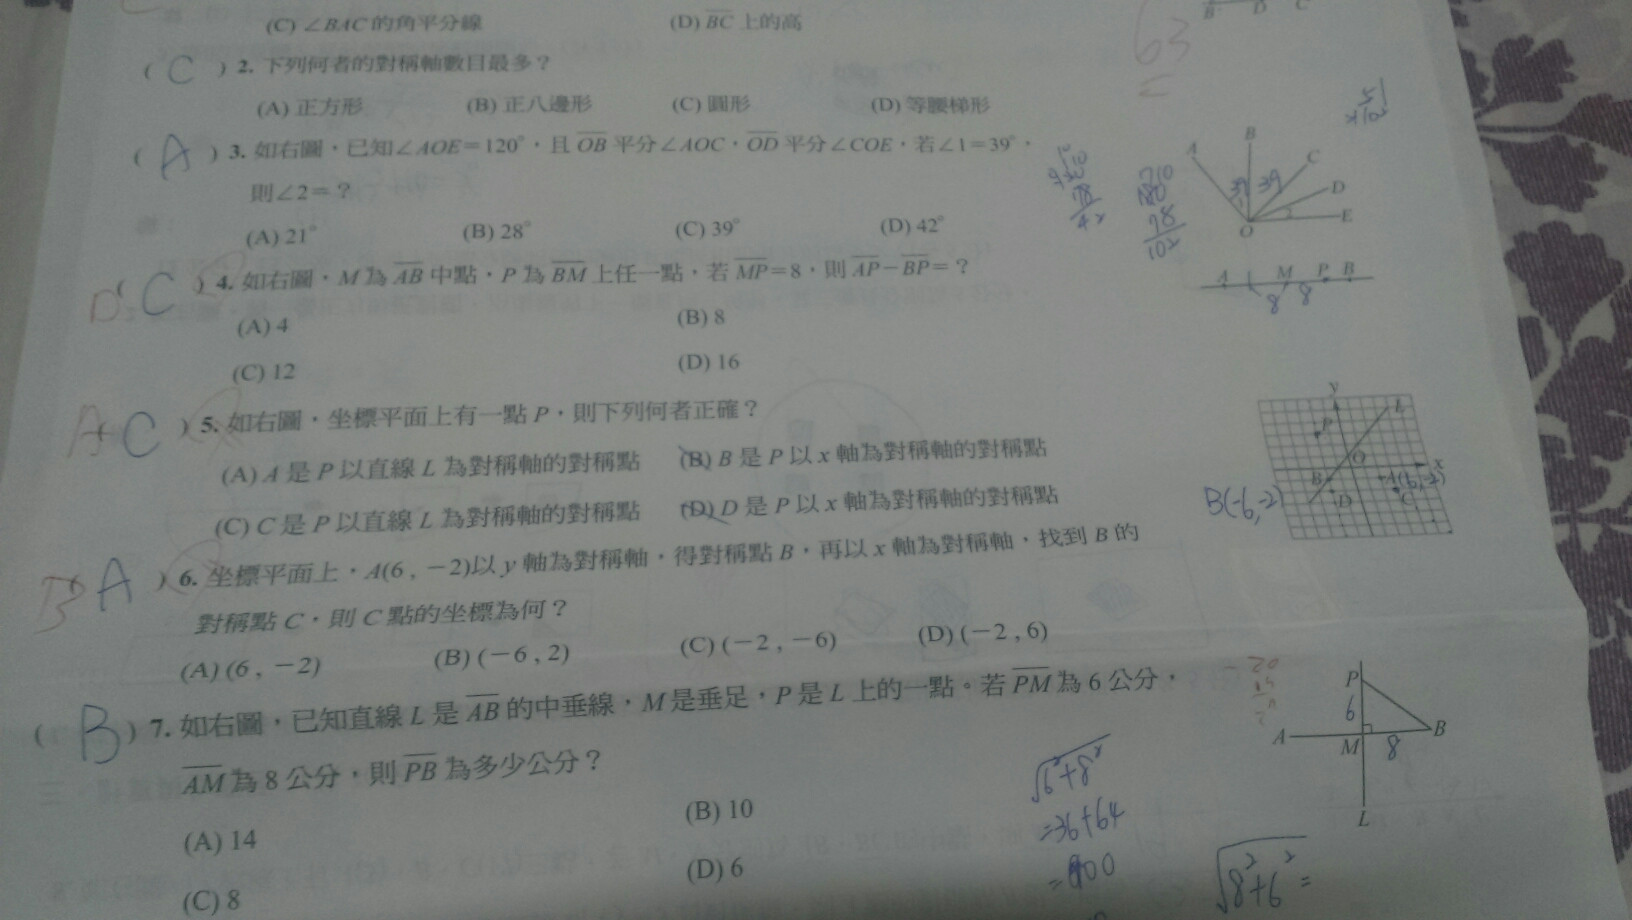 (C) ∠BAC 的角平分線 (D) BC 上的高
B D C
63
( C ) 2. 下列何者的對稱軸數目最多？
(A) 正方形 (B) 正八邊形 (C) 圓形 (D) 等腰梯形
( A ) 3. 如右圖，已知∠AOE=120°，且 OB 平分∠AOC，OD 平分∠COE，若∠1=39°，
則∠2=？
(A) 21° (B) 28° (C) 39° (D) 42°
A B C D E O
39 39
78
102
D ( C ) 4. 如右圖，M 為 AB 中點，P 為 BM 上任一點，若 MP=8，則 AP－BP=？
A M P B
8 8
(A) 4 (B) 8
(C) 12 (D) 16
A C ) 5. 如右圖，坐標平面上有一點 P，則下列何者正確？
(A) A 是 P 以直線 L 為對稱軸的對稱點 (B) B 是 P 以 x 軸為對稱軸的對稱點
(C) C 是 P 以直線 L 為對稱軸的對稱點 (D) D 是 P 以 x 軸為對稱軸的對稱點
y L P O x B A(6,-2) D C
B(-6,-2)
B A ) 6. 坐標平面上，A(6 , －2)以 y 軸為對稱軸，得對稱點 B，再以 x 軸為對稱軸，找到 B 的
對稱點 C，則 C 點的坐標為何？
(A) (6 , －2) (B) (－6 , 2) (C) (－2 , －6) (D) (－2 , 6)
( B ) 7. 如右圖，已知直線 L 是 AB 的中垂線，M 是垂足，P 是 L 上的一點。若 PM 為 6 公分，
AM 為 8 公分，則 PB 為多少公分？
(A) 14 (B) 10
(C) 8 (D) 6
P 6 A M 8 B L
√6²+8²
=36+64
=100
√8²+6² =